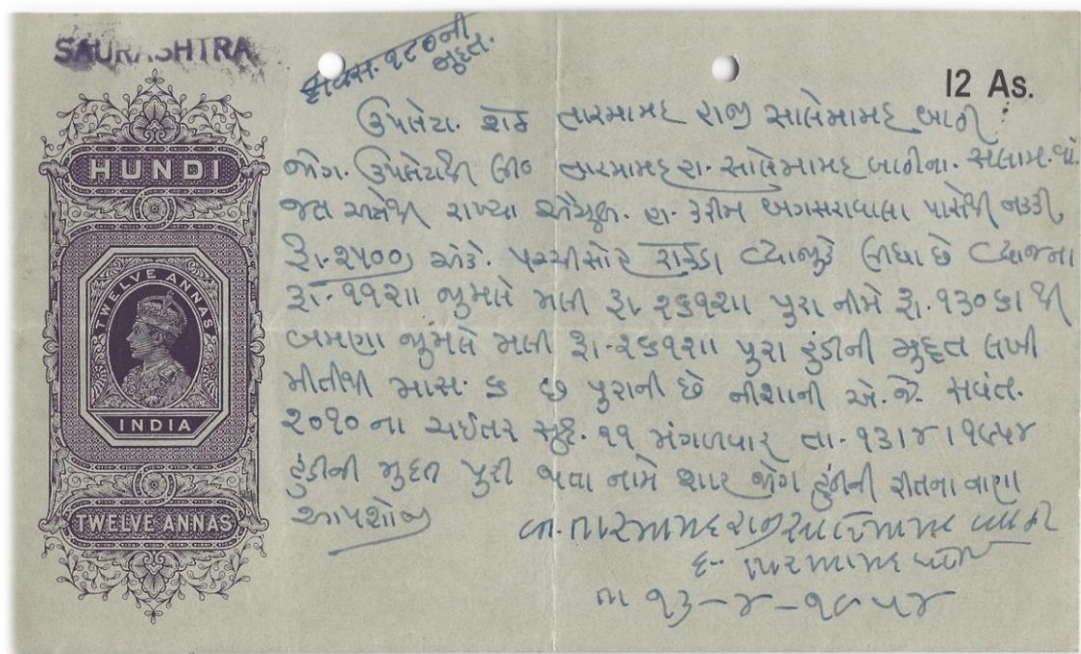 SAURASHTRA
દીવસ. ૧૮૦ની
મુદત.
12 As.
HUNDI
TWELVE ANNAS
INDIA
TWELVE ANNAS
ઉપલેટા. શેઠ તારમામદ રાજી સાલેમામદ
જોગ. ઉપલેટાથી લી૦ તારમામદ રા. સાલેમામદ સલામ.
જત અત્રેથી રાખ્યા હા. કરીમ બગસરાવાલા પાસેથી
રૂા-૨૫૦૦ અંકે. પચ્ચીસોહ વ્યાજુકે લીધા છે વ્યાજના
રૂા-૧૧૨ાા જુમલે મલી રૂા. ૨૬૧૨ાા પુરા નીમે રૂા. ૧૩૦૬ા થી
બમણા જુમલે મલી રૂા-૨૬૧૨ાા પુરા હુંડીની મુદ્દત લખી
મીતીથી માસ. ૬ છ પુરાની છે નીશાની એ. જે. સવંત.
૨૦૧૦ ના ચઈતર સુદ. ૧૧ મંગળવાર તા. ૧૩।૪।૧૯૫૪
હુંડીની મુદત પુરી થવા નામે શાહ જોગ હુંડીની રીતના નાણા
આપશોજી
તારમામદ
તા ૧૩-૪-૧૯૫૪